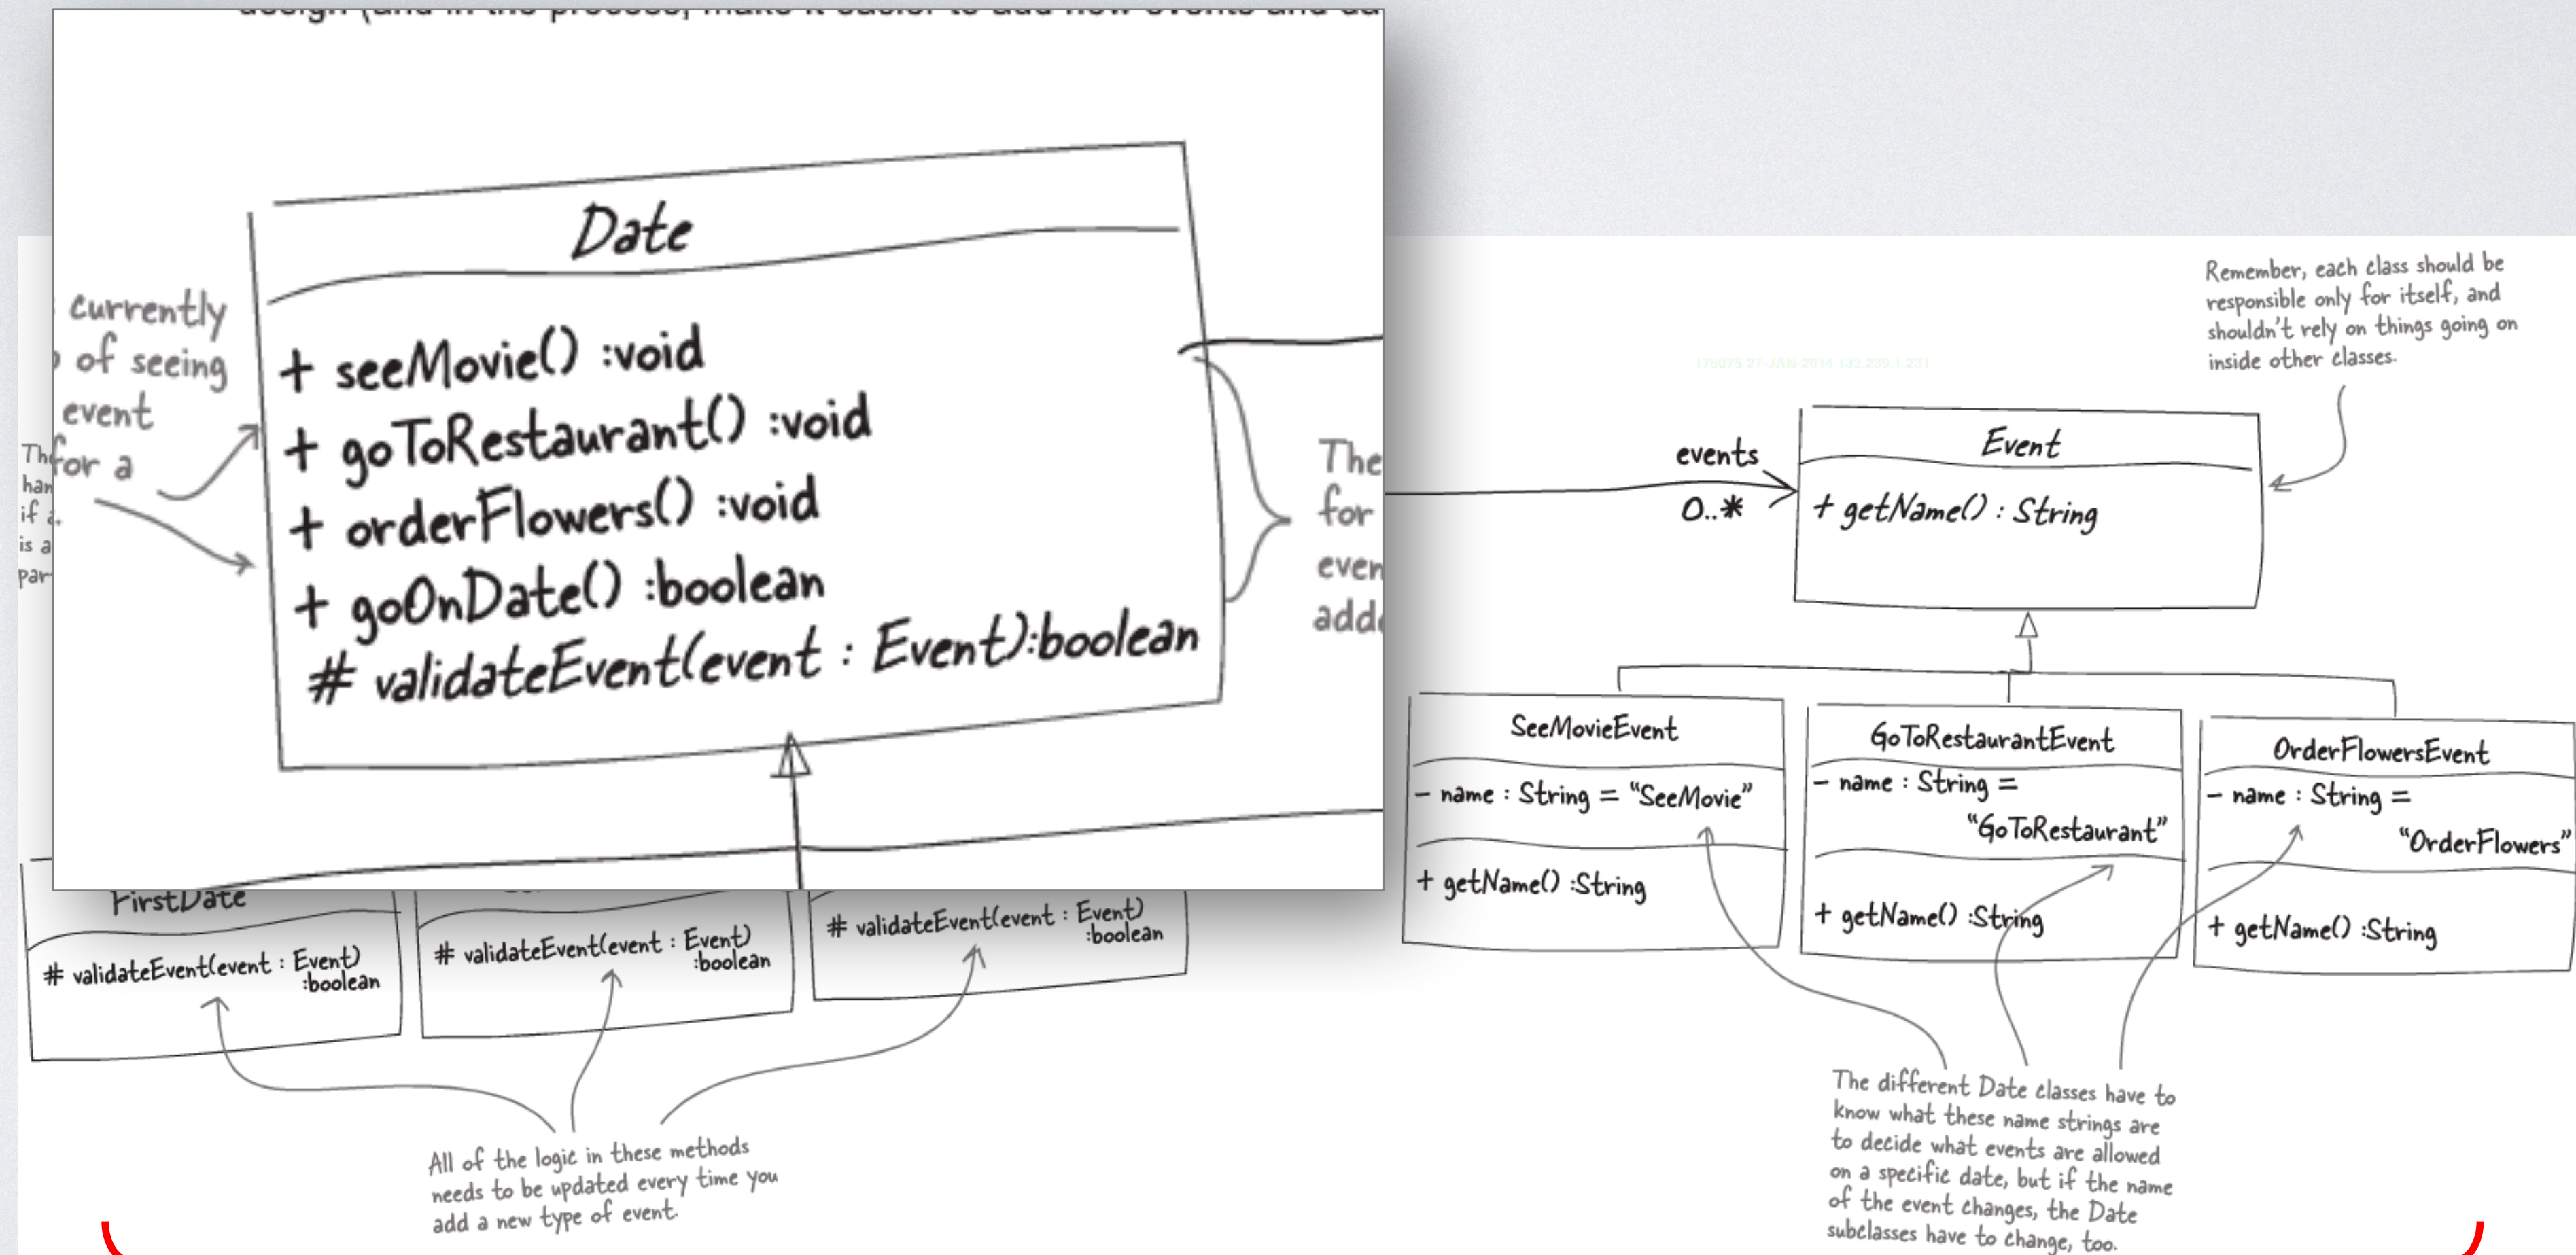 Date
+ seeMovie() :void
+ goToRestaurant() :void
+ orderFlowers() :void
+ goOnDate() :boolean
# validateEvent(event : Event):boolean
currently
of seeing
event
for a
The
for
even
The
han
if a
is a
par
FirstDate
# validateEvent(event : Event)
:boolean
# validateEvent(event : Event)
:boolean
# validateEvent(event : Event)
:boolean
All of the logic in these methods
needs to be updated every time you
add a new type of event.
events
0..*
Remember, each class should be
responsible only for itself, and
shouldn't rely on things going on
inside other classes.
176075 27-JAN-2014 132.239.1.231
Event
+ getName() : String
SeeMovieEvent
- name : String = "SeeMovie"
+ getName() :String
GoToRestaurantEvent
- name : String =
"GoToRestaurant"
+ getName() :String
OrderFlowersEvent
- name : String =
"OrderFlowers"
+ getName() :String
The different Date classes have to
know what these name strings are
to decide what events are allowed
on a specific date, but if the name
of the event changes, the Date
subclasses have to change, too.